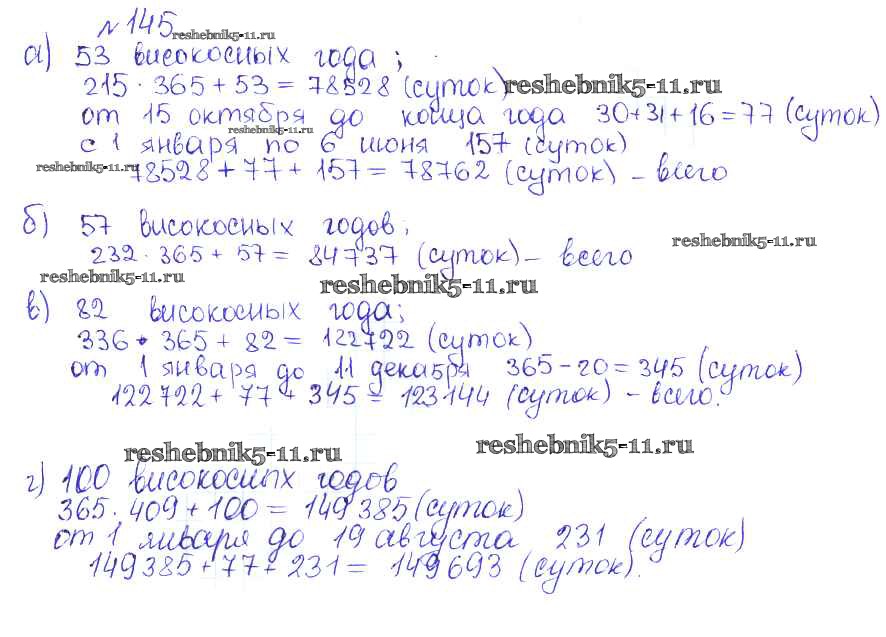 №145 reshebnik5-11.ru
а) 53 високосных года;
215 · 365 + 53 = 78528 (суток) reshebnik5-11.ru
от 15 октября до конца года 30+31+16=77 (суток)
reshebnik5-11.ru
с 1 января по 6 июня 157 (суток)
reshebnik5-11.ru 78528 + 77 + 157 = 78762 (суток) – всего
б) 57 високосных годов;
232 · 365 + 57 = 84737 (суток) – всего reshebnik5-11.ru
reshebnik5-11.ru reshebnik5-11.ru
в) 82 високосных года;
336 · 365 + 82 = 122722 (суток)
от 1 января до 11 декабря 365 – 20 = 345 (суток)
122722 + 77 + 345 = 123144 (суток) – всего.
reshebnik5-11.ru reshebnik5-11.ru
г) 100 високосных годов
365 · 409 + 100 = 149385 (суток)
от 1 января до 19 августа 231 (суток)
149385 + 77 + 231 = 149693 (суток).